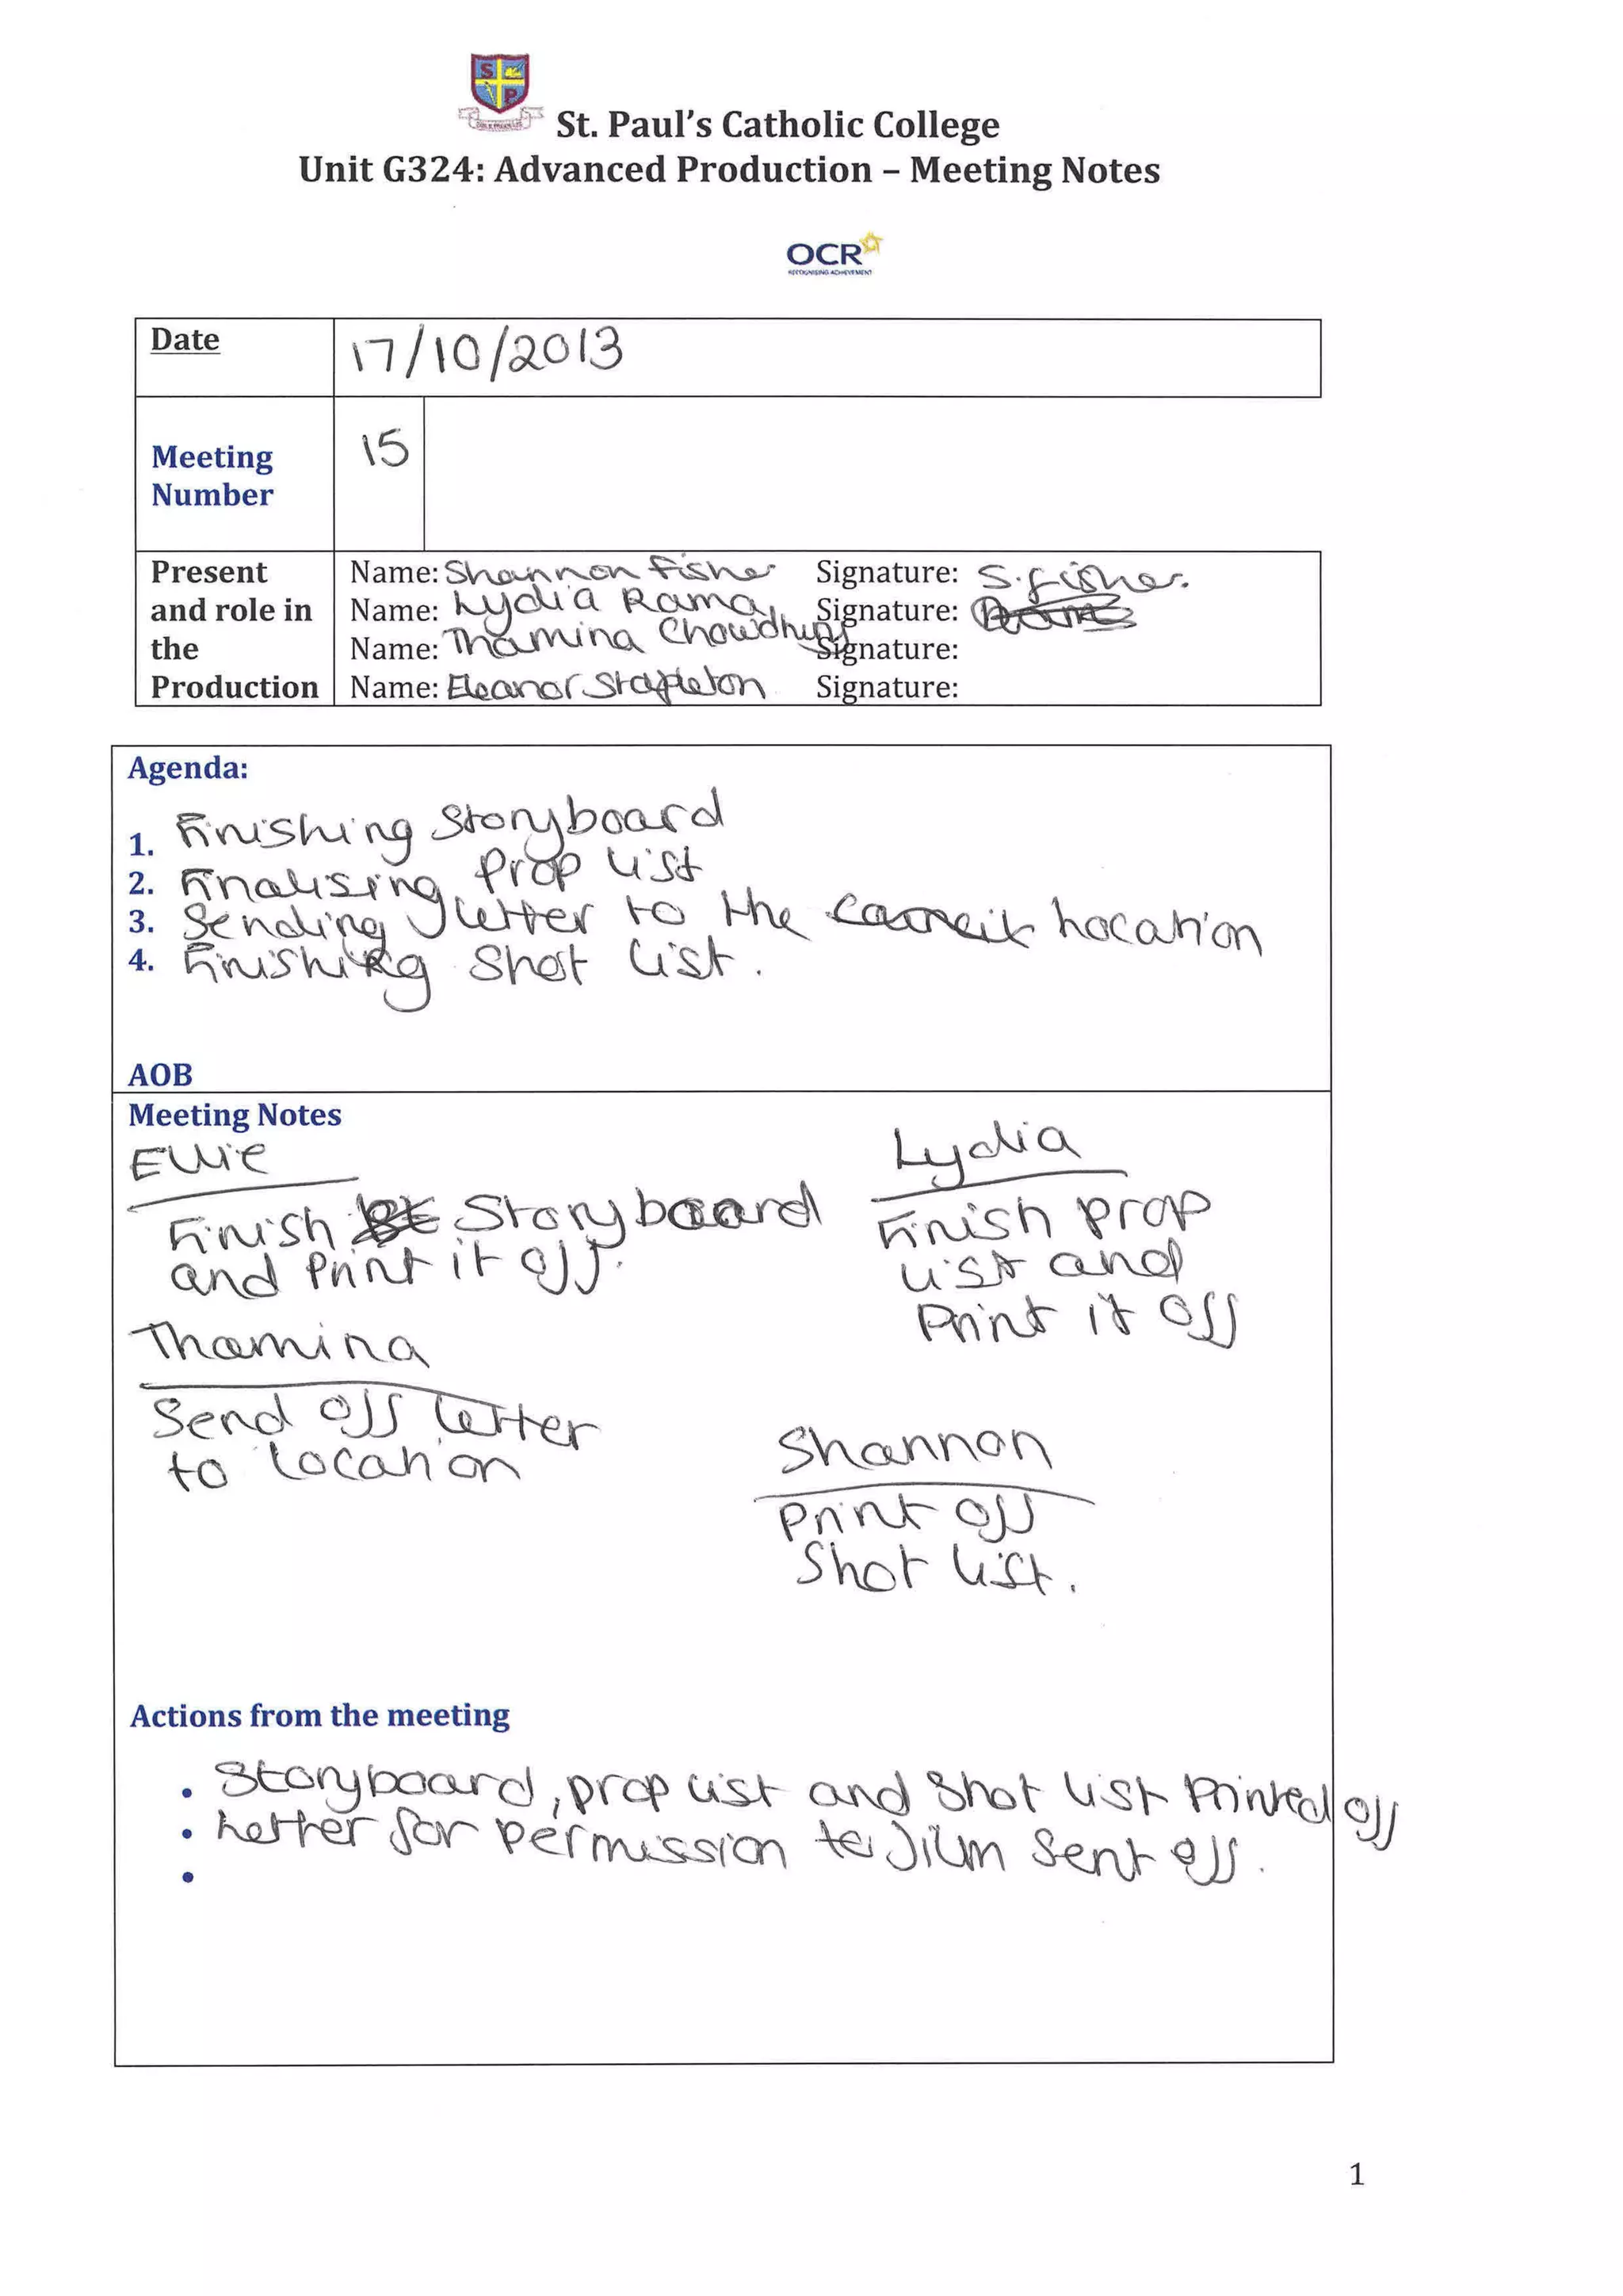 St. Paul's Catholic College
Unit G324: Advanced Production – Meeting Notes
OCR
RECOGNISING ACHIEVEMENT
Date 17/10/2013
Meeting Number 15
Present and role in the Production
Name: Shannon Fisher Signature: S.Fisher.
Name: Lydia Rama Signature:
Name: Thamina Chowdhury Signature:
Name: Eleanor Stapleton Signature:
Agenda:
1. Finishing Storyboard
2. Finalising Prop list
3. Sending letter to the Location
4. Finishing Shot List.
AOB
Meeting Notes
Ellie
Finish Storyboard
and Print it off.
Lydia
Finish prop
list and
Print it off
Thamina
Send off letter
to Location
Shannon
Print off
Shot list.
Actions from the meeting
• Storyboard, prop list and Shot list Printed off
• Letter for permission to film Sent off.
•
1